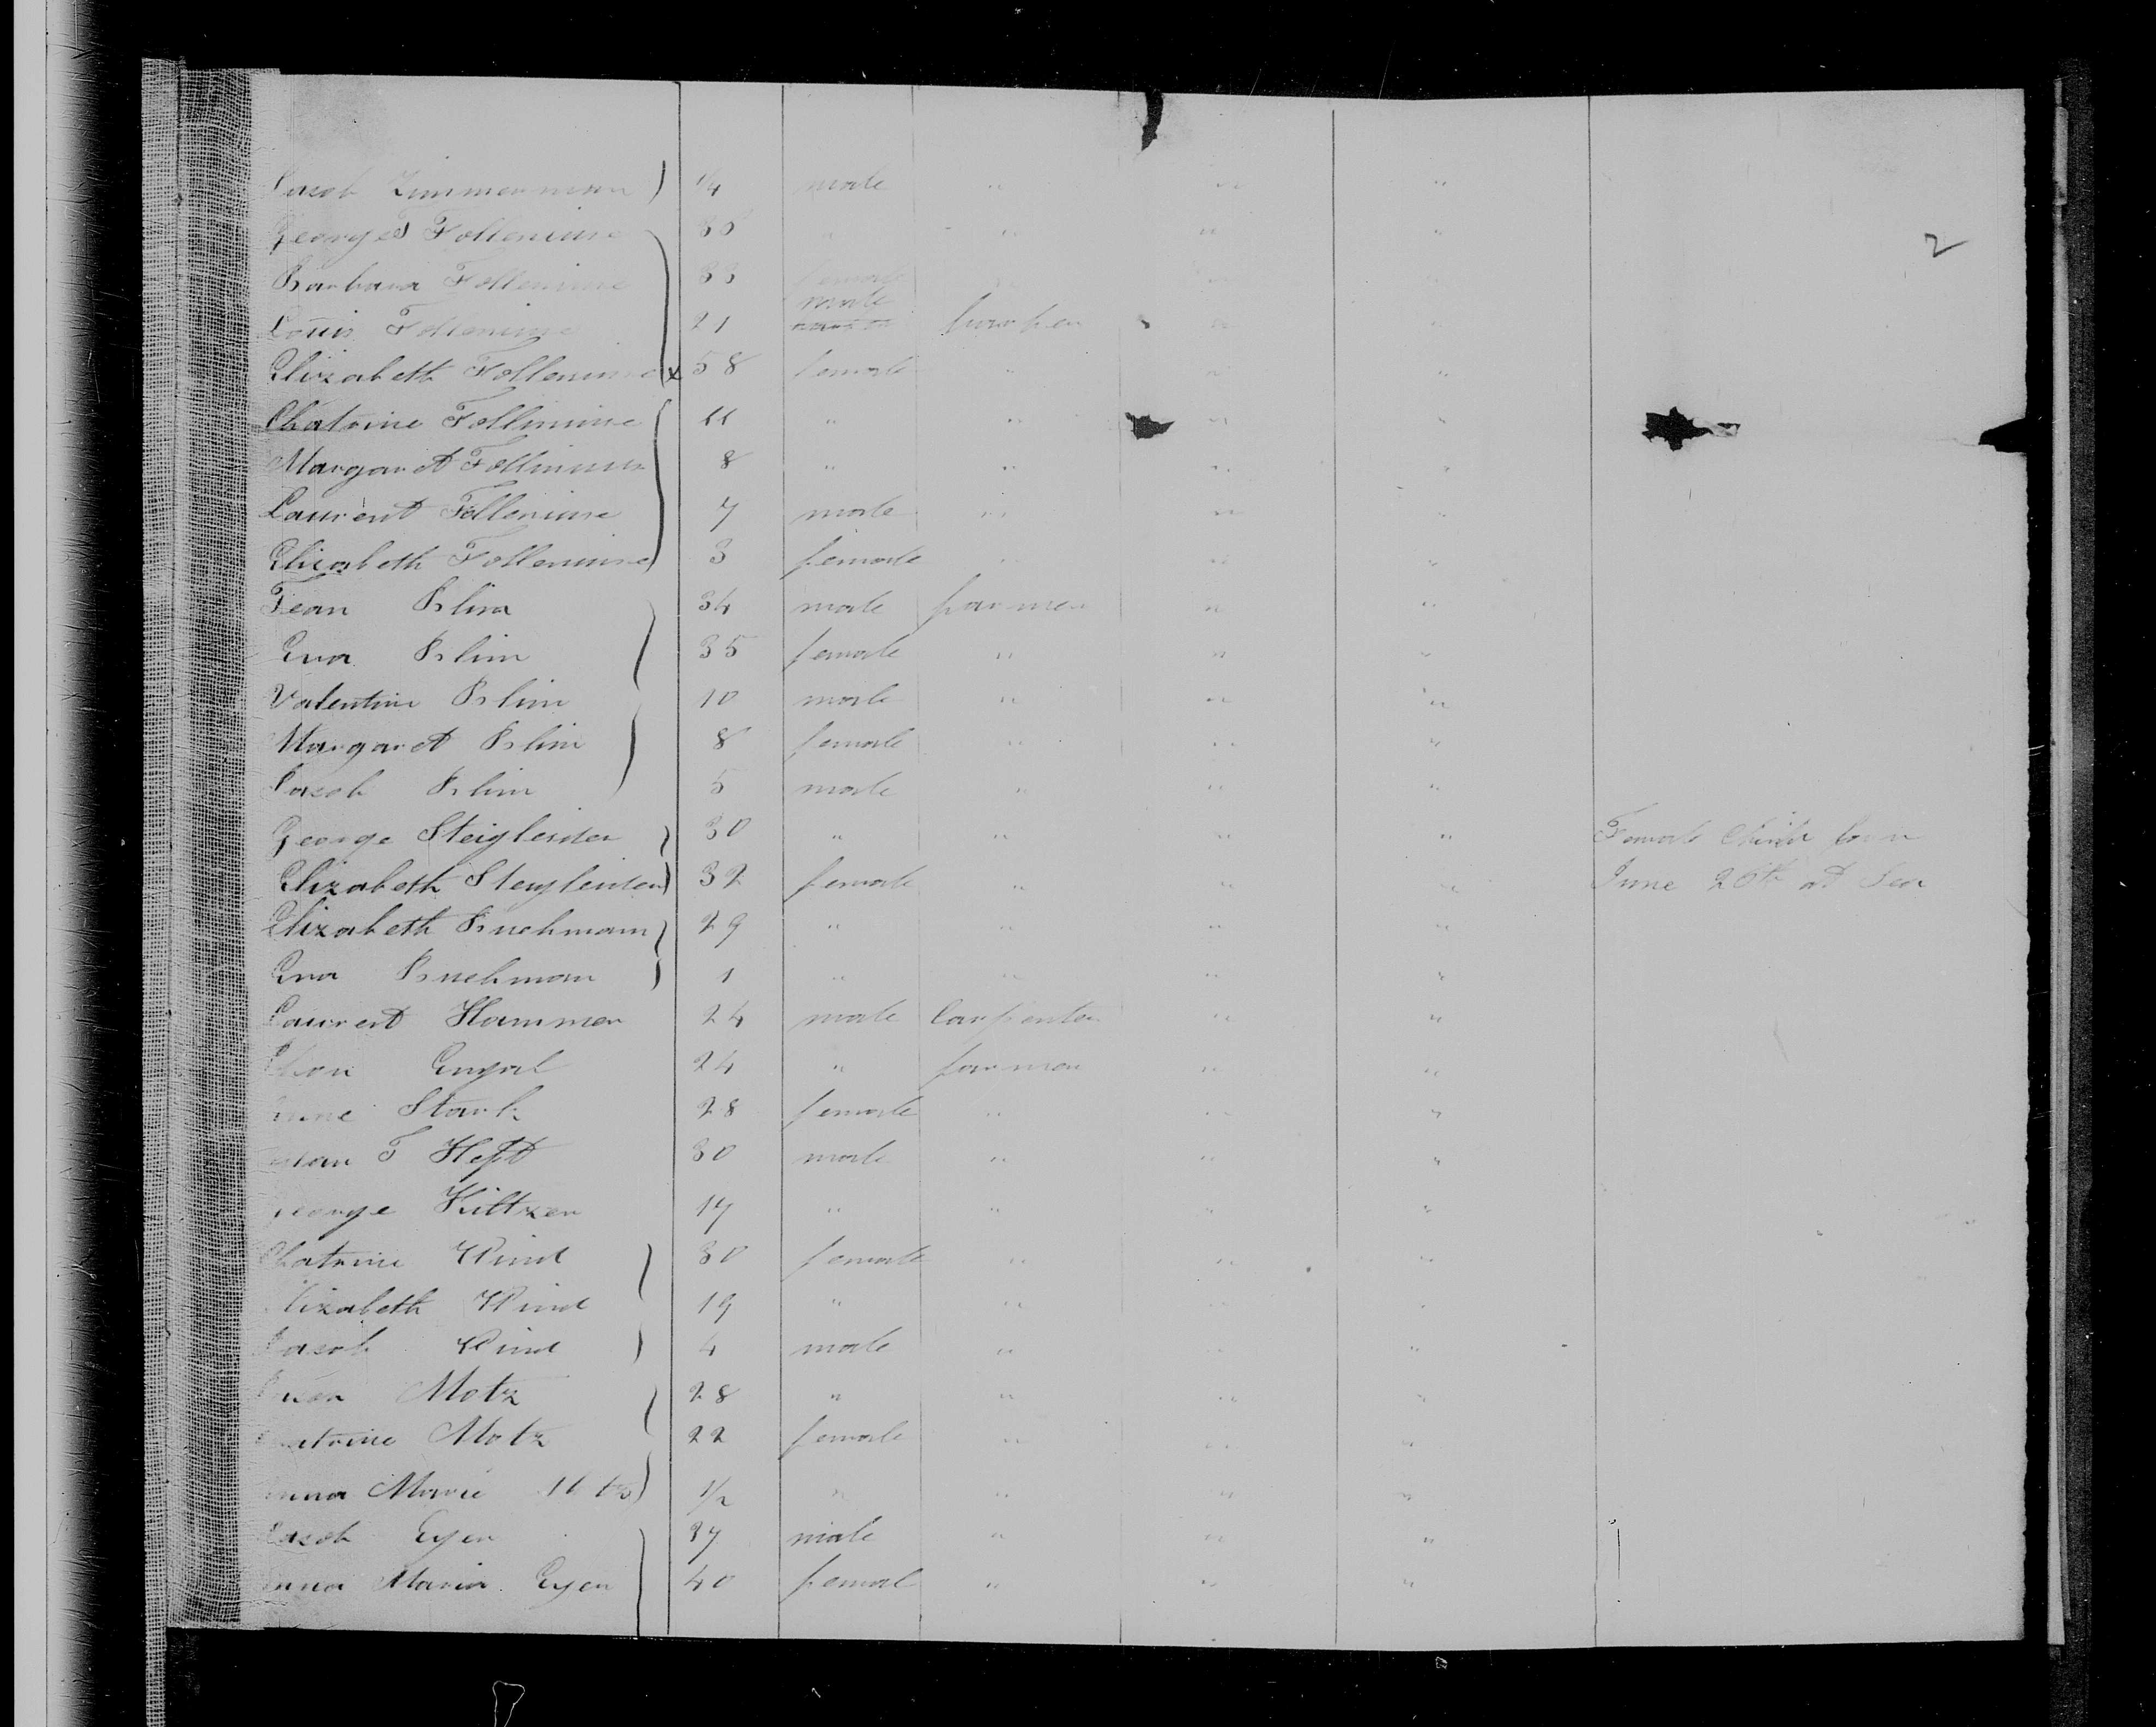 Jacob Zimmerman 1/4 male " " "
2
George Follenius 36 " " " "
Barbara Follenius 33 female " " "
male
Louis Follenius 21 " "
Elizabeth Follenius x 58 female " " "
Chatrine Follinius 11 " " " "
Margaret Follinius 8 " " " "
Laurent Follenius 7 male " " "
Elizabeth Follenius 3 female " " "
Jean Klim 34 male farmer " "
Eva Klim 35 female " " "
Valentine Klim 10 male " " "
Margaret Klim 8 female " " "
Jacob Klim 5 male " " "
George Steigleiter 30 " " " " Female Child born
Elizabeth Steigleiter 32 female " " " June 26th at Sea
Elizabeth 29 " " " "
Eva 1 " " " "
Laurent Hammer 24 male Carpenter " "
24 " farmer " "
Stark 28 female " " "
Heft 30 male " " "
George 17 " " " "
Chatrine Wind 30 female " " "
Elizabeth Wind 19 " " " "
Jacob Wind 4 male " " "
Motz 28 " " " "
Chatrine Motz 22 female " " "
Anna Marie Motz 1/2 " " " "
Jacob Eyer 37 male " " "
Anna Maria Eyer 40 femal " " "